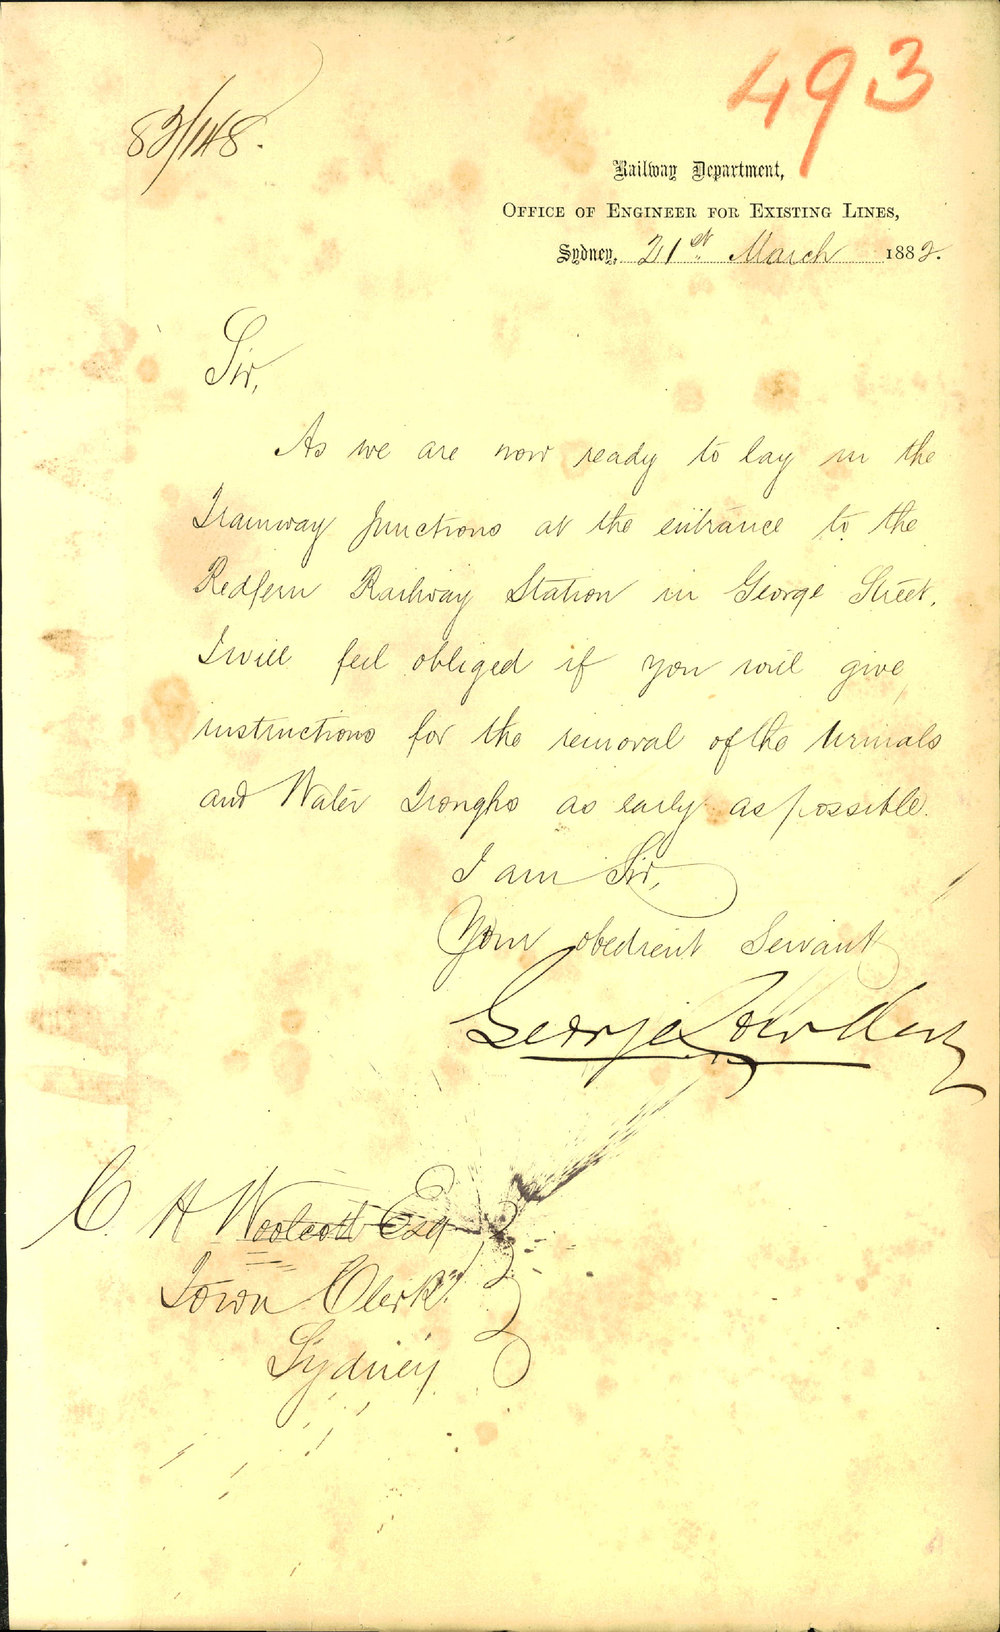 493
82/148.
Railway Department,
OFFICE OF ENGINEER FOR EXISTING LINES,
Sydney, 21st March 1882.
Sir,
As we are now ready to lay in the
Tramway Junctions at the entrance to the
Redfern Railway Station in George Street,
I will feel obliged if you will give
instructions for the removal of the Urinals
and Water Troughs as early as possible.
I am Sir,
Your obedient Servant
George Cowdery
C. H Woolcott Esq
Town Clerk
Sydney